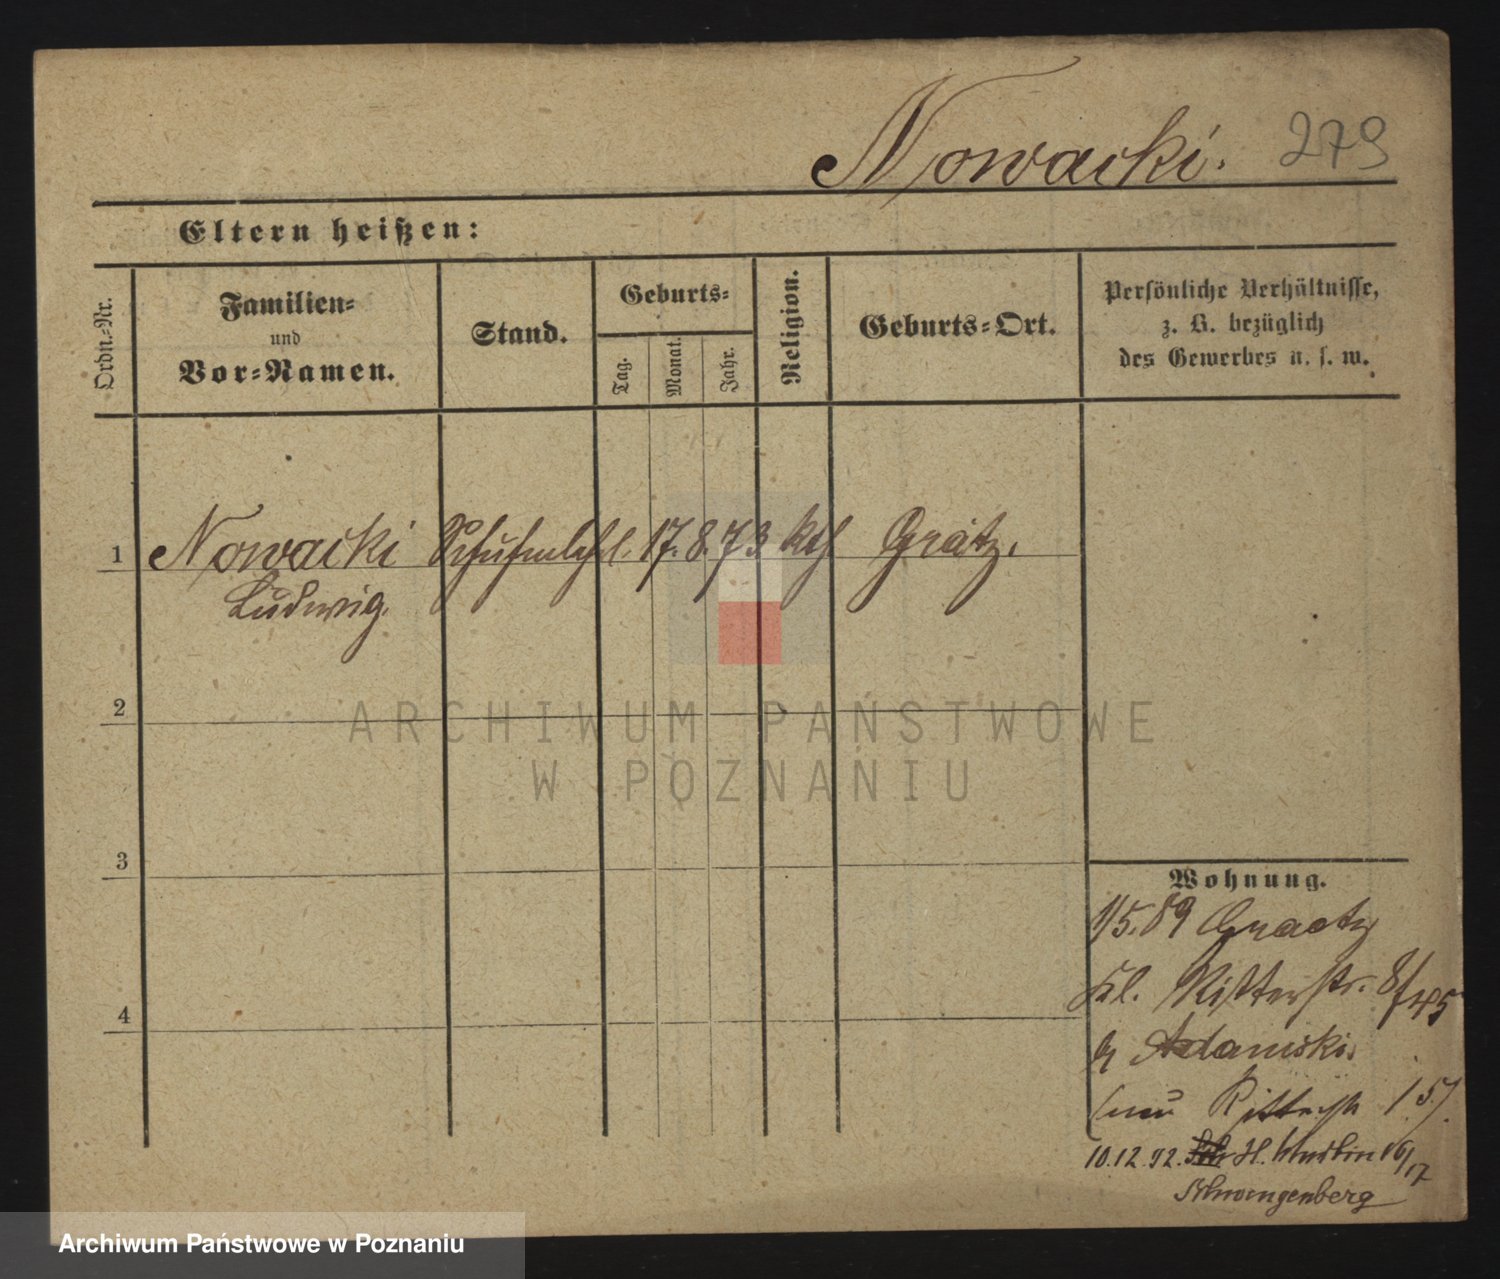 Nowacki. 279
Eltern heißen:
Ordn.-Nr.
Familien-
und
Vor-Namen.
Stand.
Geburts-
Tag.
Monat.
Jahr.
Religion.
Geburts-Ort.
Persönliche Verhältnisse,
z. B. bezüglich
des Gewerbes u. s. w.
1 Nowacki Schuhm. 17. 8. 73 kth Grätz.
Ludwig.
2
3
4
ARCHIWUM PAŃSTWOWE
W POZNANIU
Wohnung.
1/5. 89 Graetz
Kl. Ritterstr. 8/
Adamski.
Ritterstr 15
10.12.92. St. Martin 16/17
Schwangenberg
Archiwum Państwowe w Poznaniu